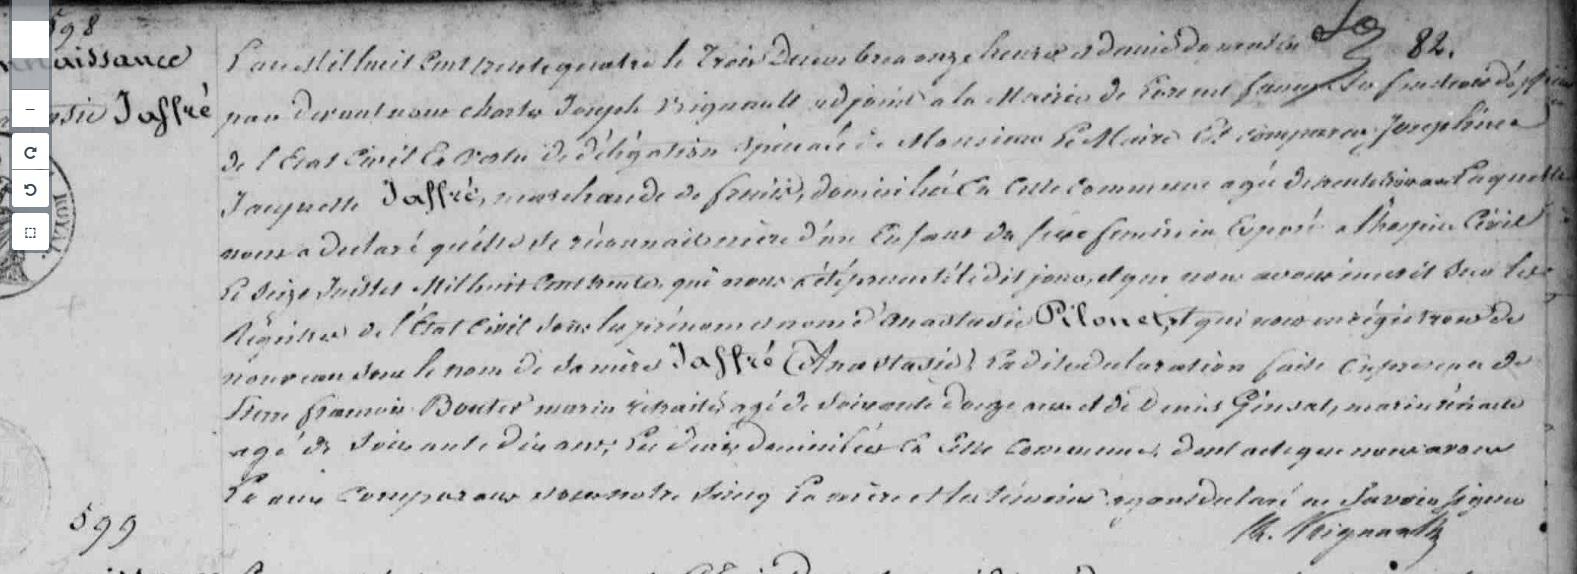 598
82.
naissance
Jaffré
L'an Mil huit Cent trente quatre le Trois Décembre a onze heures et demie du matin
par devant nous Charles Joseph Vrignault adjoint a la Mairie de Lorient faisant les fonctions d'officier
de l'Etat Civil En vertu de délégation spéciale de Monsieur Le Maire Est comparue Josephine
Jacquette Jaffré, marchande de fruits, domiciliée En Cette Commune agée de trente trois ans Laquelle
nous a declaré quelle se réconnait mère d'un Enfant du sexe feminin Exposé a l'hospice Civil
Le Seize Juillet Mil huit Cent trente, qui nous a été présenté le dit jour, et que nous avons inscrit sur les
Régistres de l'Etat Civil sous les prénom et nom d'Anastasie Pilonet, et qui nous enrégistrons de
nouveau sous le nom de sa mère Jaffré (Anastasie) La dite declaration faite En presence de
Pierre francois Boutet marin retraité, agé de soixante douze ans et de Denis marin retraité
agé de soixante dix ans, Les deux domiciliés En Cette Commune, dont acte que nous avons
Lu aux Comparans sous notre Seing La mère et les témoins ayant declaré ne Savoir signer
Ch. Vrignault
599